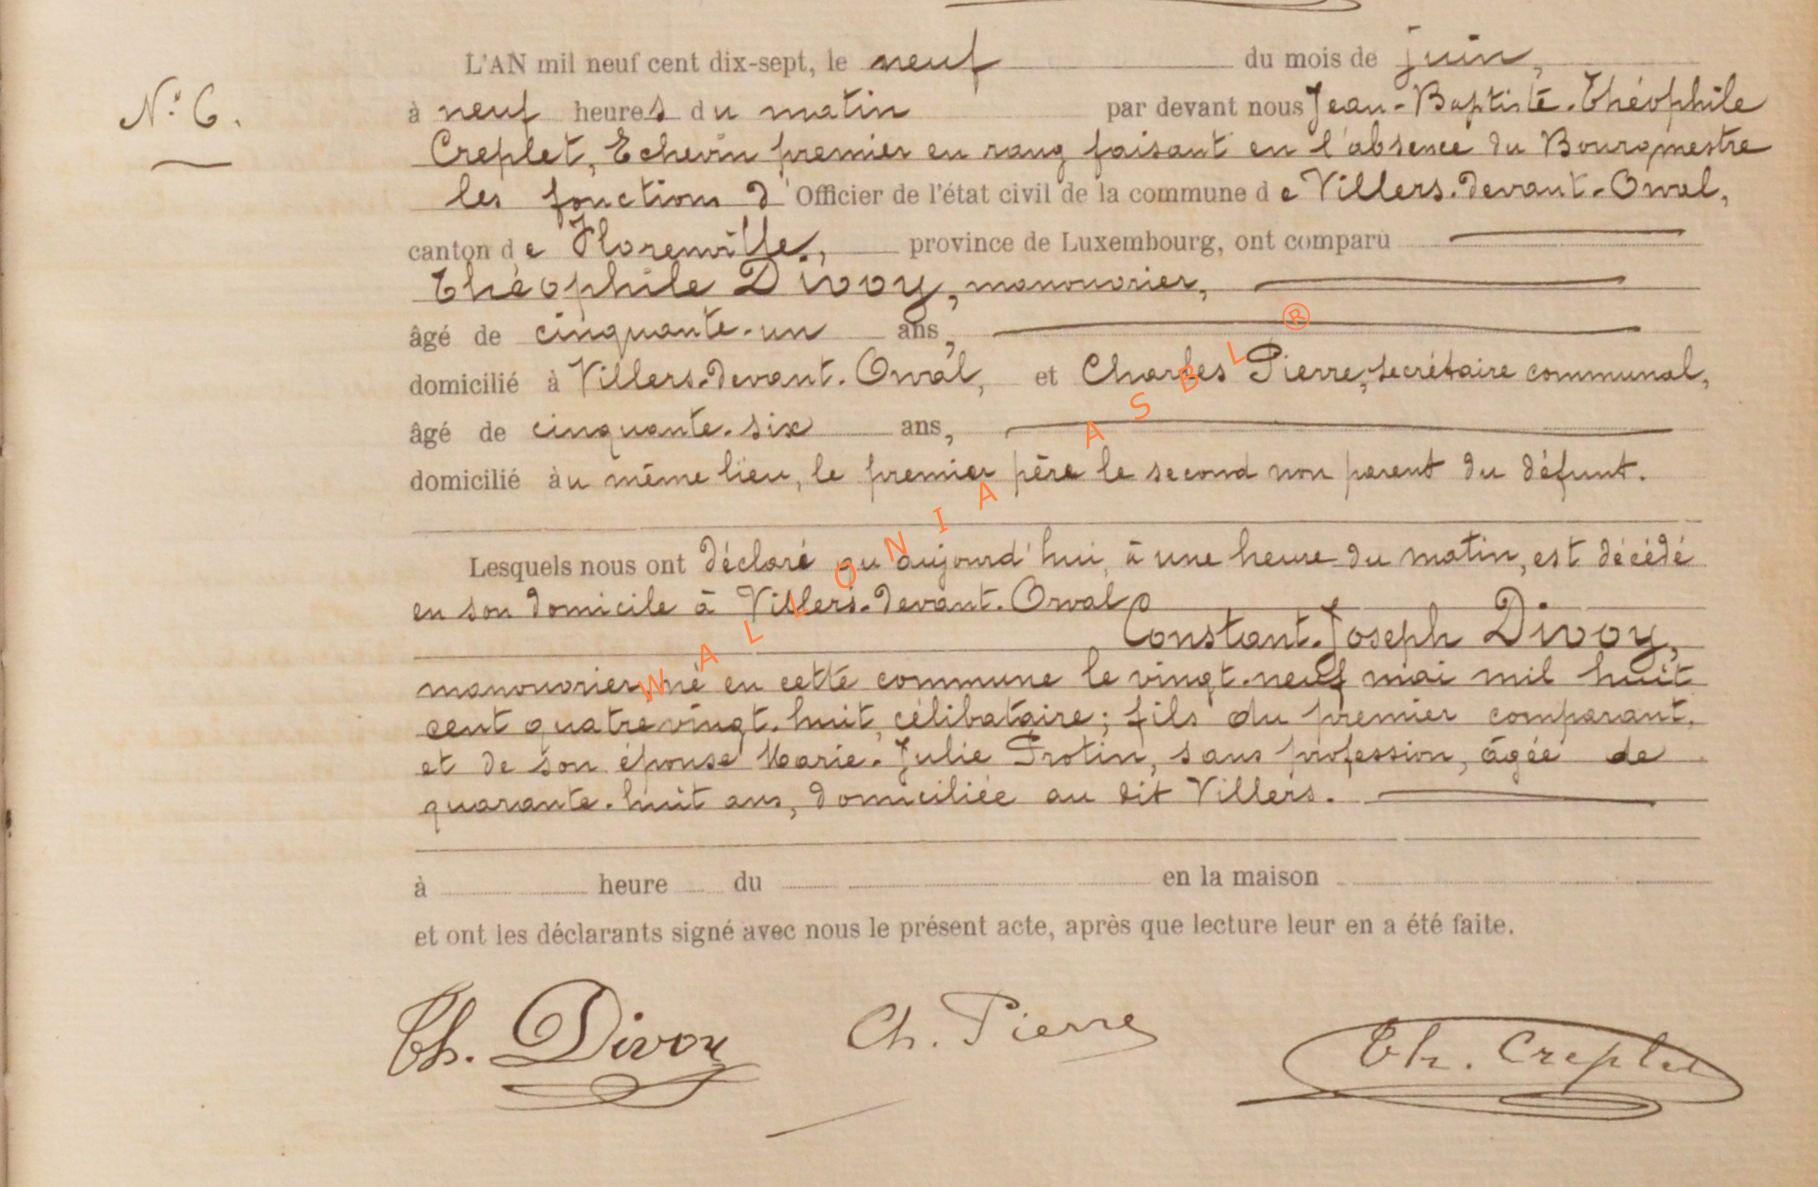 L'AN mil neuf cent dix-sept, le neuf du mois de juin,
N° 6. à neuf heures du matin par devant nous Jean-Baptiste-Théophile
Creplet, Echevin premier en rang faisant en l'absence du Bourgmestre
les fonctions d'Officier de l'état civil de la commune de Villers-devant-Orval,
canton de Florenville, province de Luxembourg, ont comparu
Théophile Divoy, manouvrier,
âgé de cinquante-un ans,
domicilié à Villers-devant-Orval, et Charles Pierre, secrétaire communal,
âgé de cinquante-six ans,
domicilié au même lieu, le premier père le second non parent du défunt.
Lesquels nous ont déclaré qu'aujourd'hui, à une heure du matin, est décédé
en son domicile à Villers-devant-Orval
Constant-Joseph Divoy,
manouvrier né en cette commune le vingt-neuf mai mil huit
cent quatrevingt-huit, célibataire; fils du premier comparant,
et de son épouse Marie-Julie Frotin, sans profession, âgée de
quarante-huit ans, domiciliée au dit Villers.
à heure du en la maison
et ont les déclarants signé avec nous le présent acte, après que lecture leur en a été faite.
Th. Divoy Ch. Pierre Th. Creplet
WALLONIA ASBL ®